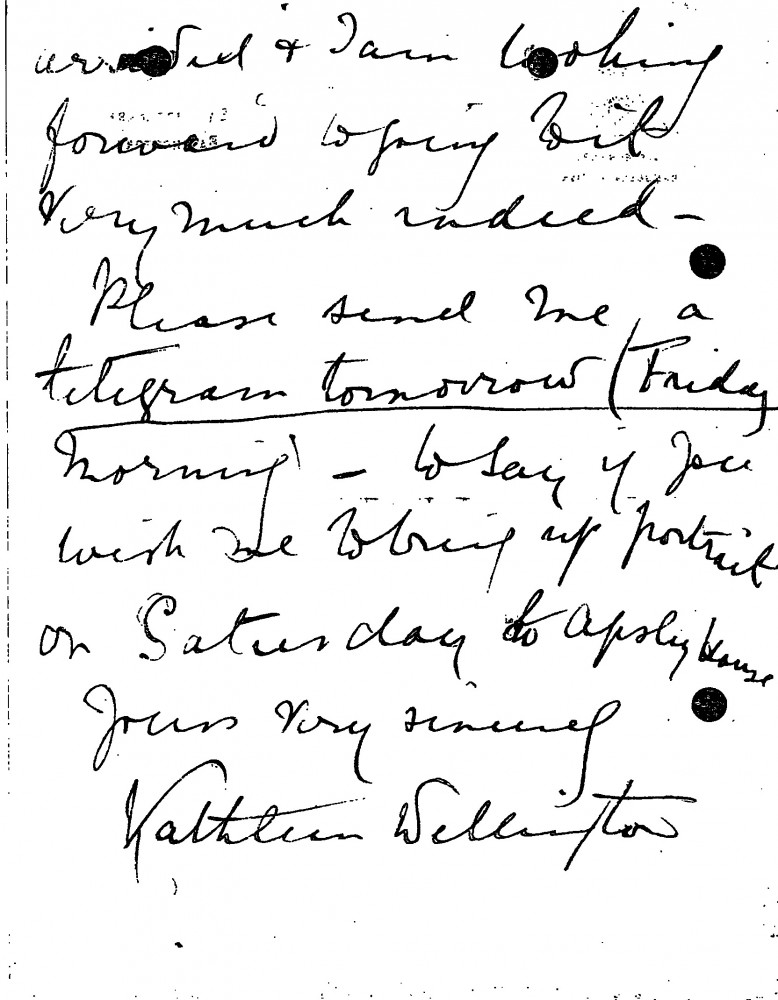 arrived & I am looking
forward to going to it
very much indeed —
Please send me, a
telegram tomorrow (Friday
morning) — to say if you
wish me to bring up portrait
on Saturday to Apsley House
Yours very sincerely
Kathleen Wellington